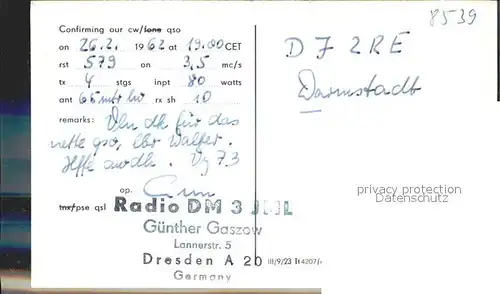 8539
Confirming our cw/fone qso
on 26.2. 1962 at 19.00 CET
rst 579 on 3,5 mc/s
tx 4 stgs inpt 80 watts
ant 65 mtr lw rx sh 10
remarks: Vln dk für das
nette qso, lbr Walter.
Hffe awdh. Vy 73
op.
tnx/pse qsl
Radio DM 3 JML
Günther Gaszow
Lannerstr. 5
Dresden A 20
Germany
III/9/23 It 4207/
DJ 2RE
Darmstadt
privacy protection
Datenschutz